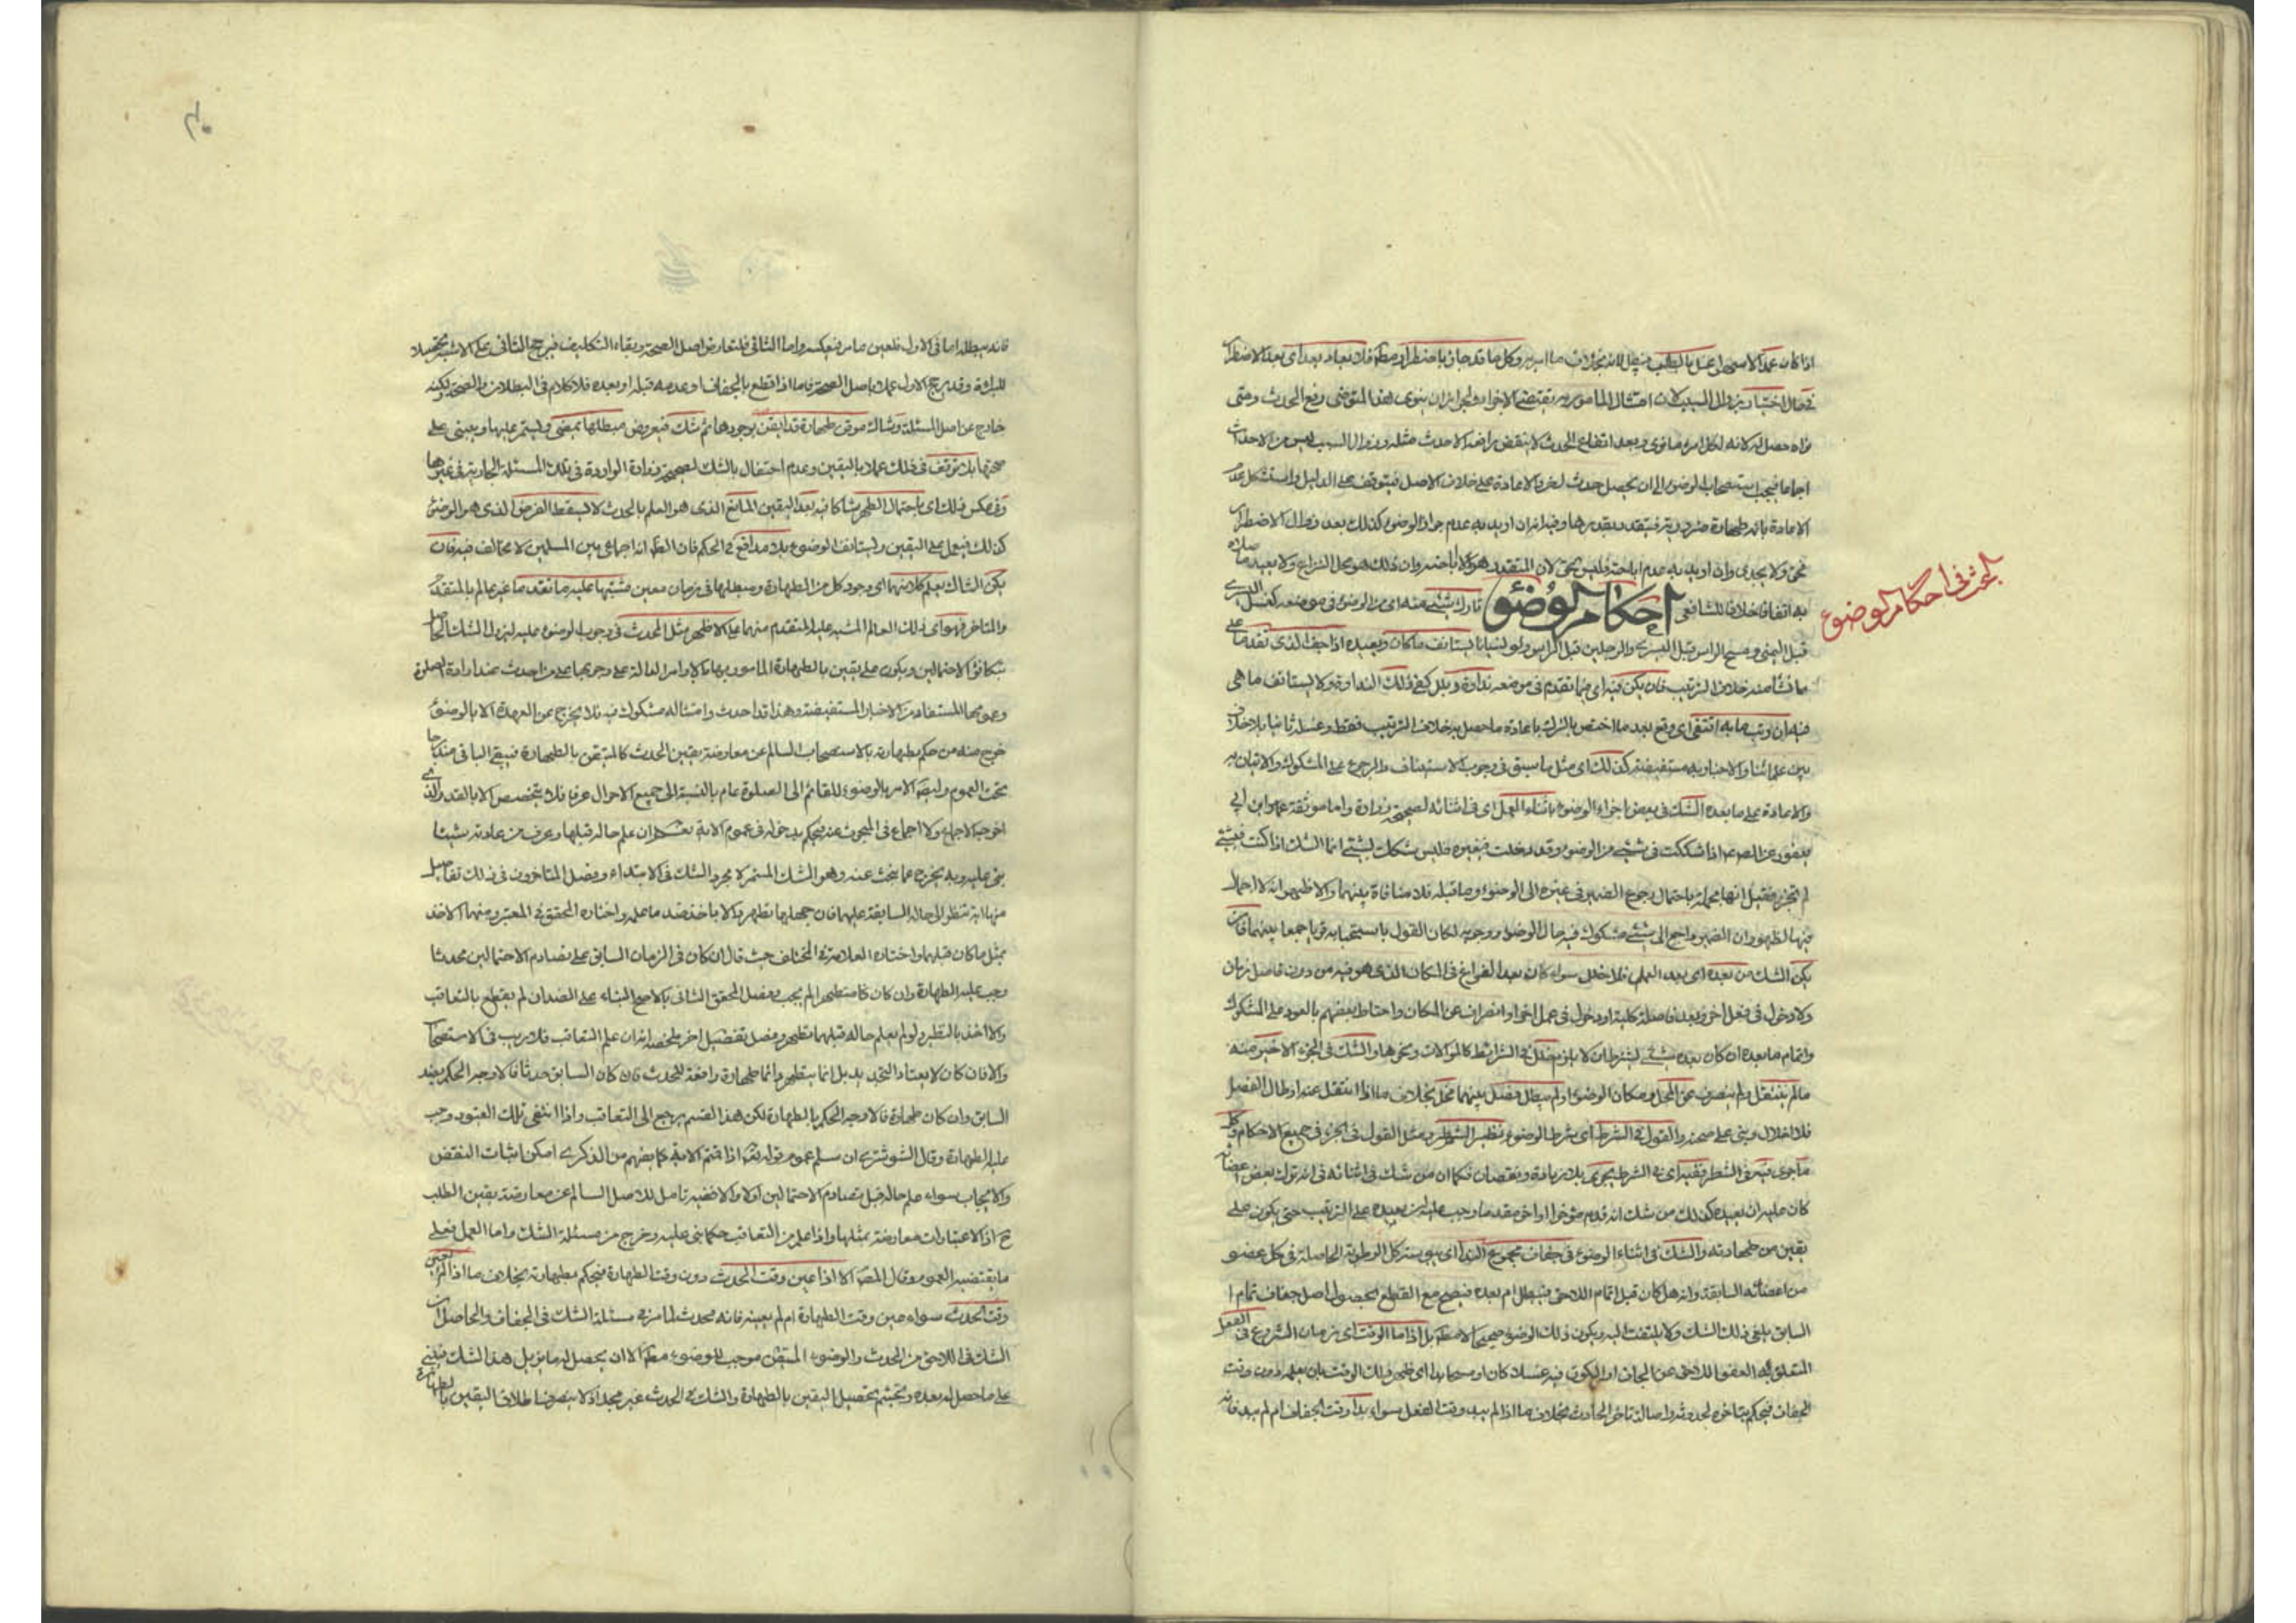 اذا كان عند الاسهال عمل بالطلب فيبطل لانه بخلاف ما امر به وكل ما قد جاز باضطرار مطهرا فلا يعاد بعد اى بعد الاضطرار
فى حال اختيار بزوال السبب لان امتثال المامور به يقتضى الاجزاء ولجواز ان ينوى هذا المتوضى رفع الحدث ومتى
نواه حصل له لانه لكل امرء ما نوى وبعد ارتفاع الحدث لا ينقض برافعه الا حدث مثله وزوال السبب ليس من الاحداث
اجماعا فيجب استصحاب الوضوء الى ان يحصل حدث اخر والاعادة على خلاف الاصل فيتوقف على الدليل واستشكل عدم
الاعادة بانه طهارة ضرورية فيتقدر بقدرها وفيه ان اريد به عدم جواز الوضوء كذلك بعد زوال الاضطرار
فحق ولا يجدى وان اريد به عدم اباحته فليس بحق لان المتقدر هو لا اباحته وان ذلك هو محل النزاع ولا يعيد ما صلاه
به اتفاقا خلافا للشافعى احكام الوضوء تارك شىء منه اى من الوضوء فى موضعه كغسل اليسرى
البحث فى احكام الوضوء
قبل اليمنى ومسح الراس قبل اليسرى والرجلين قبل الراس ولو نسيانا يستانف ما كان ويعيده اذا جف الذى تقدما على
ما نشا منه خلاف الترتيب فان يكن فيه اى فيما تقدم فى موضعه نداوة وبلل كفى ذلك النداوة ولا يستانف ما هى
فيه ان رتب ما به اقتفى اى وقع بعد ما اختص بالترك باعادة ما حصل به خلاف الترتيب فقط وغسله ثانيا بلا خلاف
بين علمائنا والاخبار به مستفيضة كذلك اى مثل ما سبق فى وجوب الاستيناف والرجوع على المشكوك والاتيان به
والاعادة على ما بعده الشك فى بعض اجزاء الوضوء باثناء العمل اى فى اثنائه لصحيحة زرارة واما موثقة عمرو ابن ابى
يعفور عن الصادق اذا شككت فى شىء من الوضوء وقد دخلت فى غيره فليس شكك بشىء انما الشك اذا كنت فى شىء
لم تجزه فقيل انها مجملة باحتمال رجوع الضمير فى غيره الى الوضوء وما قبله فلا منافاة بينهما والاظهر انه لا اجمال
فيها لظهور ان الضمير راجع الى شىء مشكوك فيه حال الوضوء ووجوبه لكان القول باستحبابه قويا جمعا بينهما فان
يكن الشك من بعده اى بعد العمل فلا خلل سواء كان بعد الفراغ فى المكان الذى هو فيه من دون فاصل زمان
ولا دخول فى فعل اخر وبعد فاصلة كلية او دخول فى عمل اخر او انصراف عن المكان واحتاط بعضهم بالعود على المشكوك
واتمام ما بعده ان كان بعده شىء بشرط ان لا يلزم خلل فى الشرايط كالموالات ونحوها والشك فى الجزء الاخير منه
ما لم ينتقل ولم ينصرف عن المحل ومكان الوضوء او لم يطل فصل بينهما مخل بخلاف ما اذا انتقل عنه او طال الفصل
فلا اخلال وبنى على صحته والقول فى الشرط اى شرط الوضوء نظير الشطر ومثل القول فى الجزء فى جميع الاحكام وكل
ما جرى فيه فى الشطر ففيه اى فى الشرط يجرى بلا زيادة ونقصان فكما ان من شك فى اثنائه فى انه ترك بعض اعضائه
كان عليه ان يعيده كذلك من شك انه قدم مؤخرا او اخر مقدما وجب عليه ان يعيده على الترتيب حتى يكون على
يقين من طهارته والشك فى اثناء الوضوء فى جفاف مجموع الندا اى يبوسة كل الرطوبة الحاصلة فى كل عضو
من اعضائه السابقة وانه هل كان قبل اتمام اللاحق فيبطل ام بعده فيصح مع القطع بحصول اصل جفاف تمام ا
السابق يلغى ذلك الشك ولا يلتفت اليه ويكون ذلك الوضوء صحيحا لا مطلقا بل اذا ما الوقت اى زمان الشروع فى الفعل
المتعلق به العضو اللاحق عن الجفاف او الكون فيه غسلا كان او مسحا بدا اى ظهر ذلك الوقت بان يعلمه دون وقت
الجفاف فيحكم بتاخره لحدوثه واصالة تاخر الحادث بخلاف ما اذا لم يبد وقت الفعل سواء بدا وقت الجفاف ام لم يبد فانه
فانه يبطله اما فى الاول فلعين ما مر فيعكس واما الثانى فلتعارض اصل الصحة وبقاء التكليف فيرجح الثانى على الاشبه تحصيلا
للبرائة وقد يرجح الاول عملا باصل الصحة فاما اذا قطع بالجفاف او عدمه قبله او بعده فلا كلام فى البطلان والصحة ولكنه
خارج عن اصل المسئلة وشاك موقن طهارة قد ايقن بوجودها ثم شك فى عروض مبطلها يمضى ويستمر عليها ويبنى على
صحتها بلا توقف فى ذلك عملا باليقين وعدم احتفال بالشك لصحيحة زرارة الواردة فى تلك المسئلة الجارية فى غيرها
وفى عكس ذلك اى باحتمال الطهر شاكا فيه بعد اليقين المانع الذى هو العلم بالحدث لا يسقط الفرض الذى هو الوضوء
كذلك فيعمل على اليقين ويستانف الوضوء بلا مدافع فى الحكم فان الظاهر انه اجماعى بين المسلمين لا مخالف فيه فان
يكن الشاك يعلم كلا منهما اى وجود كل من الطهارة ومبطلها فى زمان معين مشتبها عليه ما تقدما غير عالم بالمتقدم
والمتاخر فهو اى ذلك العالم المشتبه عليه المتقدم منهما على الاظهر مثل المحدث فى وجوب الوضوء عليه ليزول الشك الحاصل
بتكافؤ الاحتمالين ويكون على يقين بالطهارة المامور بها بالاوامر الدالة على وجوبها على من احدث عند ارادة الصلوة
وعمومها المستفاد من الاخبار المستفيضة وهذا قد احدث وامتثاله مشكوك فيه فلا يخرج عن العهدة الا بالوضوء
خرج منه من حكم بطهارته بالاستصحاب السالم عن معارضة يقين الحدث كالمتيقن بالطهارة فيبقى الباقى مندرجا
تحت العموم وايضا الامر بالوضوء للقائم الى الصلوة عام بالنسبة الى جميع الاحوال عرفا فلا يتخصص الا بالقدر الذى
اخرجه الاجماع ولا اجماع فى المبحوث عنه فيحكم بدخوله فى عموم الاية نعم ان علم حاله قبلها وعرف من عادته شيئا
بنى عليه وبه يخرج عما يبحث عنه وهو الشك المستمر لا مجرد الشك فى الابتداء وفصل المتاخرون فى ذلك تفاصيل
منها انه ينظر الى حاله السابقة عليهما فان جهلها تطهر والا ياخذ ضد ما علمه واختاره المحقق فى المعتبر ومنهما الاخذ
بمثل ما كان قبلهما واختاره العلامة فى المختلف حيث قال ان كان فى الزمان السابق على تصادم الاحتمالين محدثا
وجب عليه الطهارة وان كان متطهرا لم يجب وفصل المحقق الثانى بالاصح البناء على الضد ان لم يقطع بالتعاقب
والا اخذ بالنظير ولو لم يعلم حاله قبلهما تطهر وفصل تفصيل اخر ملخصه انه ان علم التعاقب فلا ريب فى الاستصحاب
والا فان كان لا يعتاد التجديد بل انما يتطهر دائما طهارة رافعة للحدث فان كان السابق حدثا فالاوجه الحكم بضد
السابق وان كان طهارة فالاوجه الحكم بالطهارة لكن هذا القسم يرجع الى التعاقب واذا انتفى تلك القيود وجب
عليه الطهارة وقال الشوشترى ان سلم عموم قوله تعالى اذا قمتم الاية كما يفهم من الذكرى امكن اثبات النقض
والايجاب سواء علم حاله قبل تصادم الاحتمالين او لا والا ففيه تامل للاصل السالم عن معارضة يقين الطلب
ح اذ الاعتبارات معارضة بمثلها واذا علم من التعاقب حكما بنى عليه وخرج من مسئلة الشك واما العمل فعلى
ما يقتضيه العموم وقال المص الا اذا عين وقت الحدث دون وقت الطهارة فيحكم بطهارته بخلاف ما اذا لم يعين
وقت الحدث سواء عين وقت الطهارة ام لم يعينه فانه محدث لما مر فى مسئلة الشك فى الجفاف والحاصل ان
الشك فى اللاحق من الحدث والوضوء المتيقن موجب للوضوء مطلقا الا ان يحصل له ما يزيل هذا الشك فيبنى
على ما حصل له بعده وتجشم تحصيل اليقين بالطهارة والشك فى الحدث غير مجد اذ لا ينصرف اطلاق اليقين بالطهارة